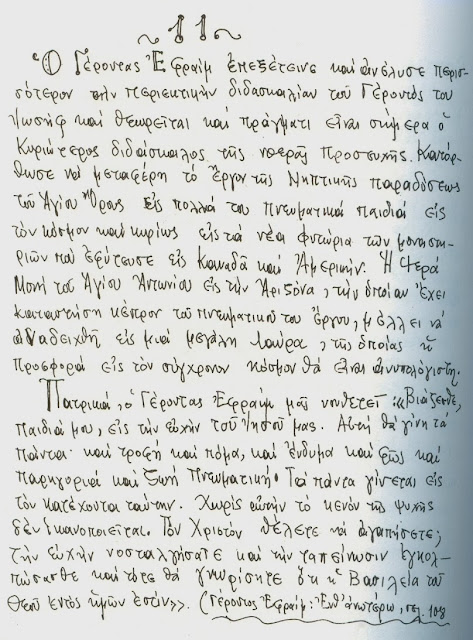 ~ 11 ~
Ὁ Γέροντας Ἐφραίμ ἐπεξέτεινε καί ἀνέλυσε περισ-
σότερον τήν περιεκτικήν διδασκαλίαν τοῦ Γέροντός του
Ἰωσήφ καί θεωρεῖται καί πράγματι εἶναι σήμερα ὁ
Κυριώτερος διδάσκαλος τῆς νοερᾶς προσευχῆς. Κατόρ-
θωσε νά μεταφέρῃ τό ἔργον τῆς Νηπτικῆς παραδόσεως
τοῦ Ἁγίου Ὄρους εἰς πολλά του πνευματικά παιδιά εἰς
τόν κόσμον καί κυρίως εἰς τά νέα φυτώρια τῶν μοναστη-
ριῶν πού ἐφύτευσε εἰς Καναδᾶ καί Ἀμερικήν. Ἡ Ἱερά
Μονή τοῦ Ἁγίου Ἀντωνίου εἰς τήν Ἀριζόνα, τήν ὁποίαν ἔχει
καταστήσῃ κέντρον τοῦ πνευματικοῦ του ἔργου, μέλλει νά
ἀναδειχθῇ εἰς μιά μεγάλη Λαύρα, τῆς ὁποίας ἡ
προσφορά εἰς τόν σύγχρονον κόσμον θά εἶναι ἀνυπολόγιστη.
Πατρικά, ὁ Γέροντας Ἐφραίμ μᾶς νουθετεῖ: «Βιάζεσθε,
παιδιά μου, εἰς τήν εὐχήν τοῦ Ἰησοῦ μας. Αὐτή θά γίνῃ τά
πάντα· καί τροφή καί πόμα, καί ἔνδυμα καί φῶς καί
παρηγοριά καί ζωή πνευματική. Τά πάντα γίνεται εἰς
τόν κατέχοντα ταύτην. Χωρίς αὐτήν τό κενόν τῆς ψυχῆς
δέν ἱκανοποιεῖται. Τόν Χριστόν θέλετε νά ἀγαπήσετε;
τήν εὐχήν νοσταλγήσατε καί τήν ταπείνωσιν ἐγκολ-
πώσασθε καί τότε θά γνωρίσητε ὅτι ἡ Βασιλεία τοῦ
Θεοῦ ἐντός ἡμῶν ἐστίν». (Γέροντος Ἐφραίμ: Ἔνθ' ἀνωτέρω, σελ. 108